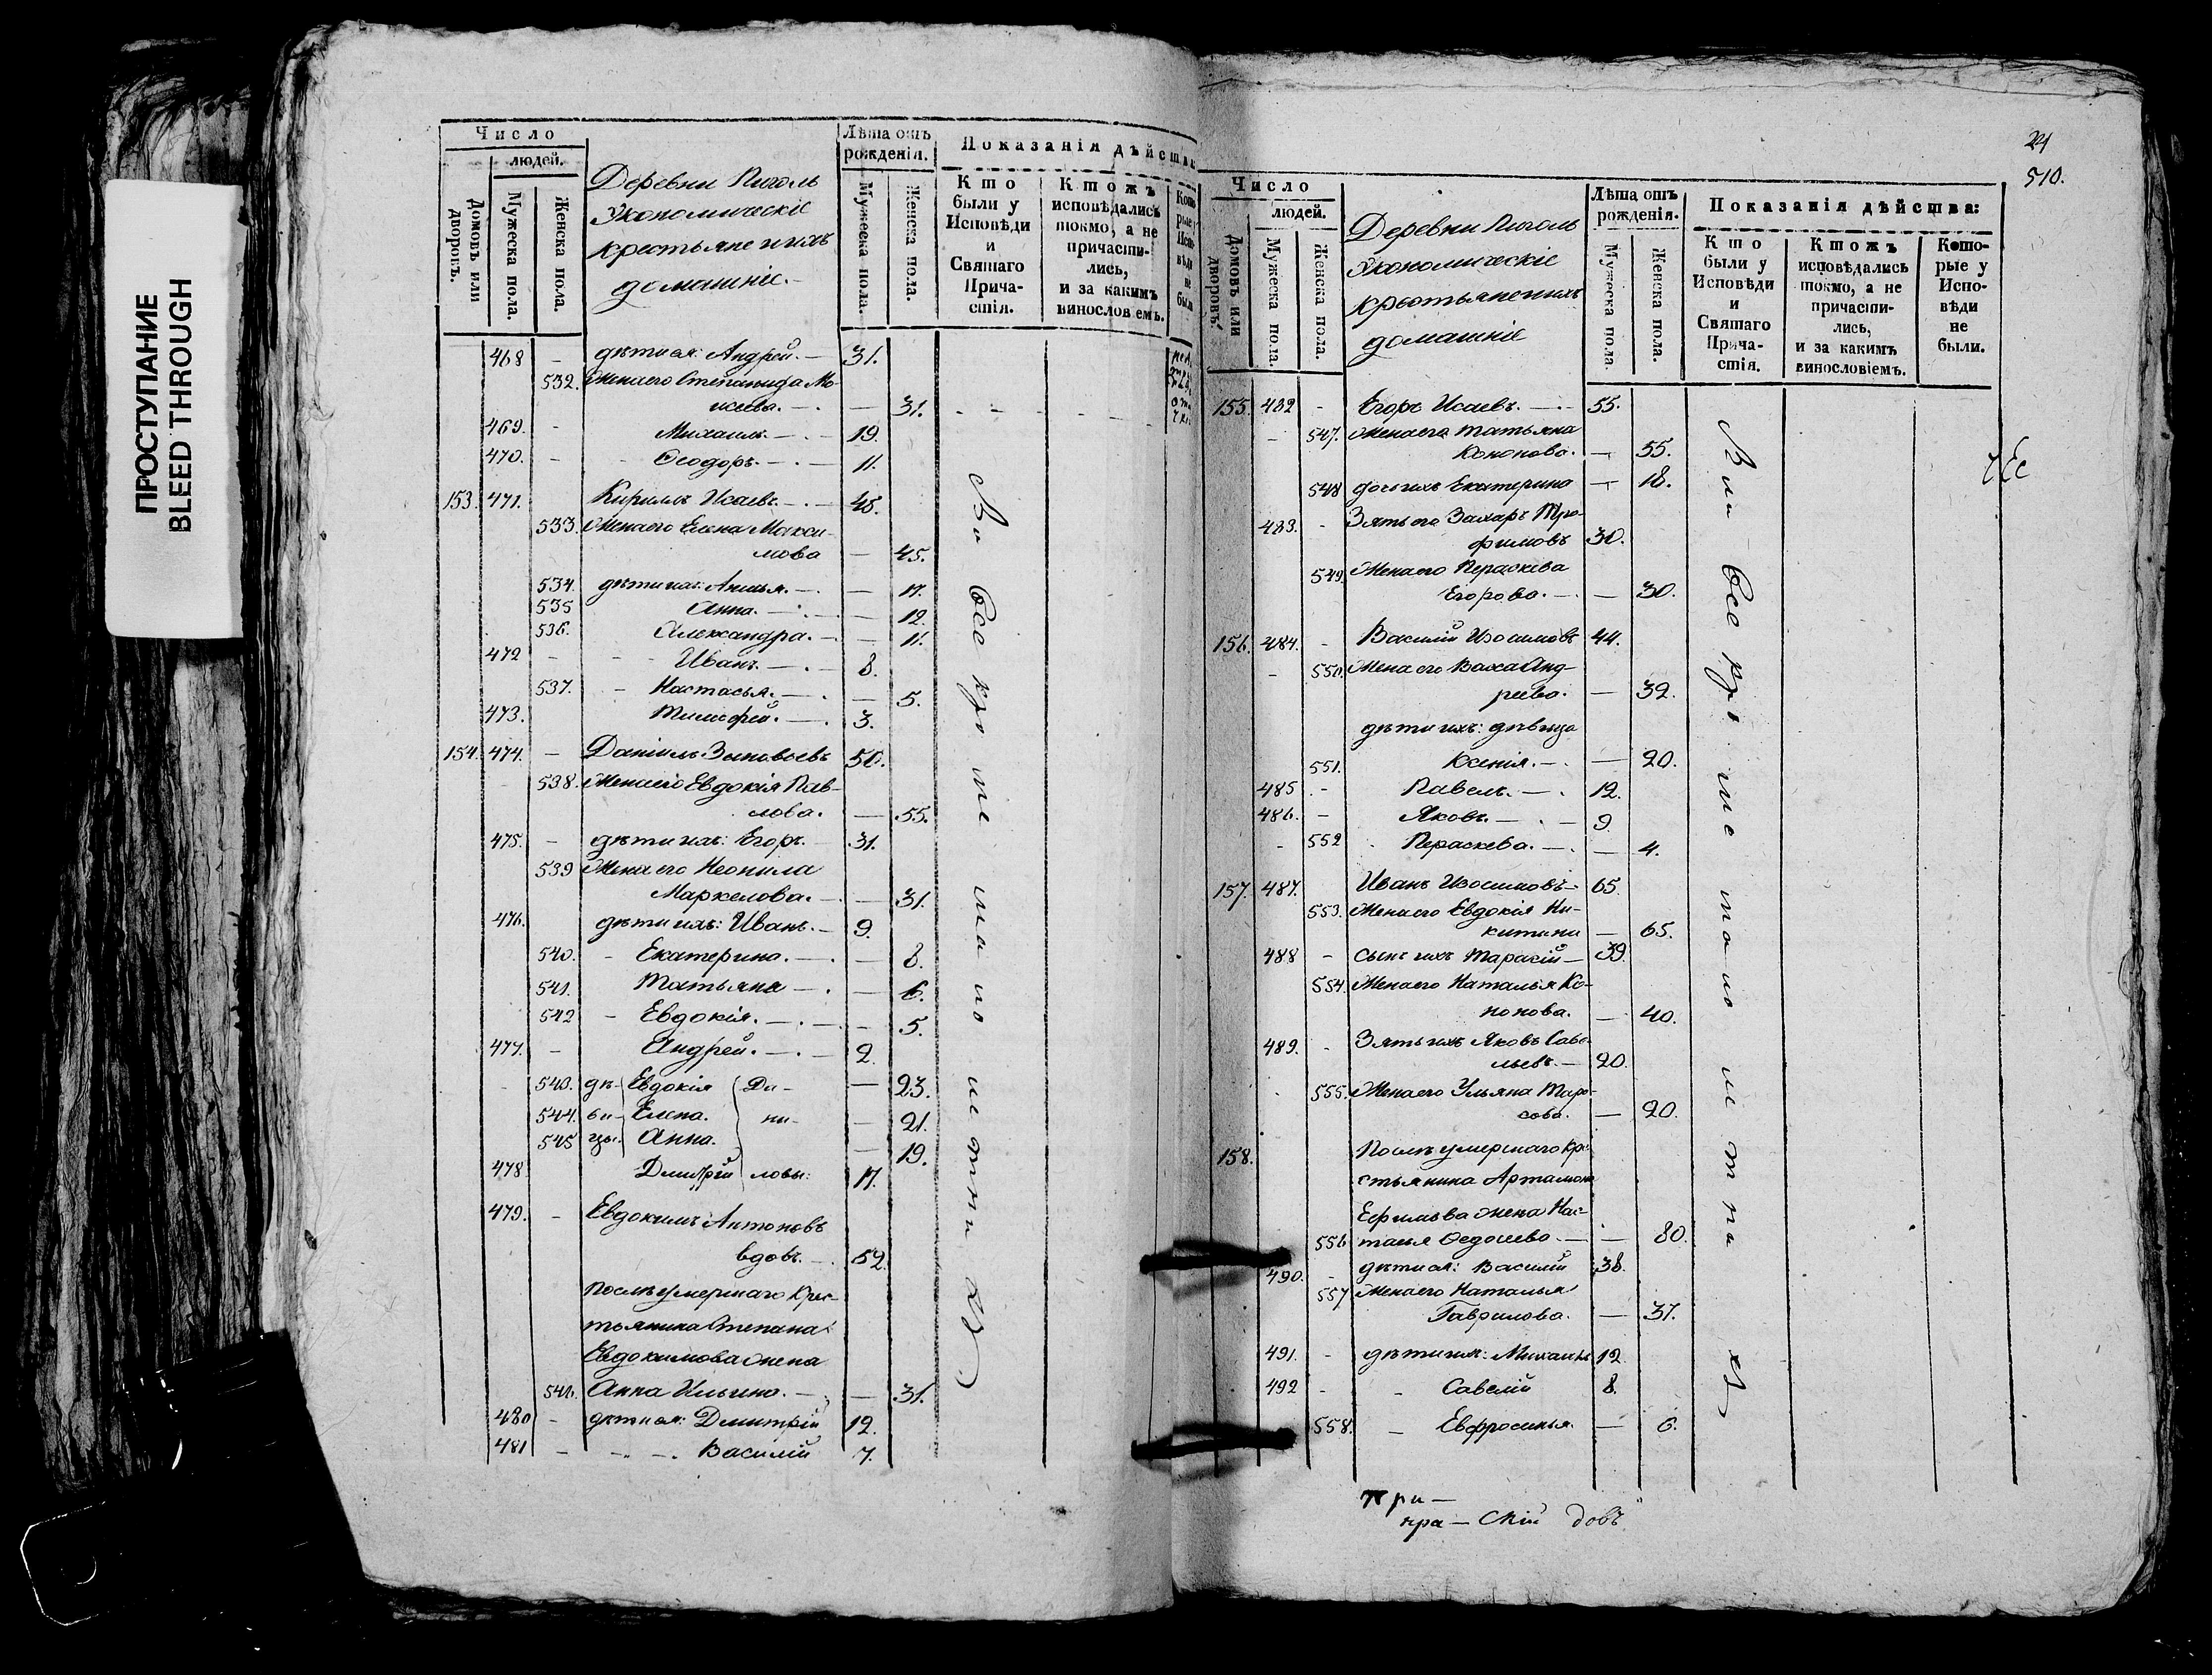 ПРОСТУПАНИЕ
BLEED THROUGH
Число
людей.
Домовъ или дворовъ.
Мужеска пола.
Женска пола.
Деревни
Экономическіе
крестьяне и ихъ
домашніе.
Лѣта отъ рожденія.
Мужеска пола.
Женска пола.
Показанія дѣйства
Кто были у Исповѣди и Святаго Причастія.
Ктожъ исповѣдались токмо, а не причастились, и за какимъ винословіемъ.
468 – дѣти ея: Андрей. – 31.
532. Жена его Степанида Мо-
исеева. – 31.
469. – Михаилъ. – 19.
470. – Ѳеодоръ. – 11.
153. 471. Кириллъ Исаевъ. – 45.
533. Жена его Елена Макси-
мова – 45.
534. дѣти ихъ: – 17.
535 Анна. – 12.
536. Александра. – 11.
472 – Иванъ. – 8.
537. – Настасья. – 5.
473. Тимофей. – 3.
154. 474. – Даніилъ Зиновьевъ
538. Жена его Евдокія Пав-
лова. – 55.
475. – дѣти ихъ: Егоръ. 31.
539 Жена его Неонила
Маркелова. – 31.
476. дѣти ихъ: Иванъ. – 9.
540. – Екатерина. – 8.
541. Татьяна – 6.
542 – Евдокія. – 5.
477. – Андрей. – 2.
543. дѣ- Евдокія Да- – 23.
544. ви- Елена. ни- – 21.
545 цы. Анна. – 19.
478 Димитрій ловы: 17.
479. – Евдокимъ Антоновъ
вдовъ. – 52.
Послѣ умершаго крес-
тьянина Степана
Евдокимова жена
546. Анна Ильина. – 31.
480 – дѣти ея: Димитрій 12.
481 – Василій 7.
Вси все
510.
Число
людей.
Домовъ или дворовъ.
Мужеска пола.
Женска пола.
Деревни
Экономическіе
крестьяне и ихъ
домашніе
Лѣта отъ рожденія.
Мужеска пола.
Женска пола.
Показанія дѣйства:
Кто были у Исповѣди и Святаго Причастія.
Ктожъ исповѣдались токмо, а не причастились, и за какимъ винословіемъ.
Которые у Исповѣди не были.
155. 482 – Егоръ Исаевъ. – 55.
547. Жена его Татьяна
Кононова. – 55.
548 дочь ихъ Екатерина – 18.
483. – Зять его Захаръ Тро-
фимовъ 30.
549. Жена его Пераскева
Егорова. – 30.
156. 484. – Василій Изосимовъ 44.
550. Жена его Анд-
реева. – 39.
дѣти ихъ: дѣвица
551. Ксенія. – 20.
485 – Павелъ. – 12.
486. – Яковъ. – 9.
552 Пераскева. – 4.
157. 487. Иванъ Изосимовъ – 65.
553. Жена его Евдокія Ни-
китина – 65.
488 – сынъ ихъ Тарасій – 39.
554. Жена его Наталья Ко-
нонова. – 40.
489. – Зять ихъ Яковъ Саве-
льевъ. – 20.
555. Жена его Ульяна Тара-
сова. – 20.
158. Послѣ умершаго кре-
стьянина Артамона
Ефимова жена Нас-
556 тасья Ѳедосеева – 80.
490. – дѣти ея: Василій 38.
557 Жена его Наталья
Гаврилова. – 37.
491. – дѣти ихъ: Михаилъ 12.
492 – – Савелій 8.
558. – Евфросинья. – 6.